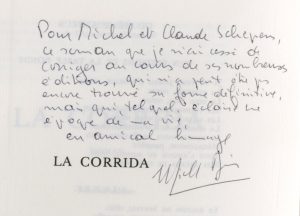 Pour Michel et Claude
ce roman que je n'ai cessé de
corriger au cours de ses nombreuses
éditions, qui n'a peut-être pas
encore trouvé sa forme définitive,
mais qui tel quel éclaire une
époque de ma vie,
en amical hommage
LA CORRIDA